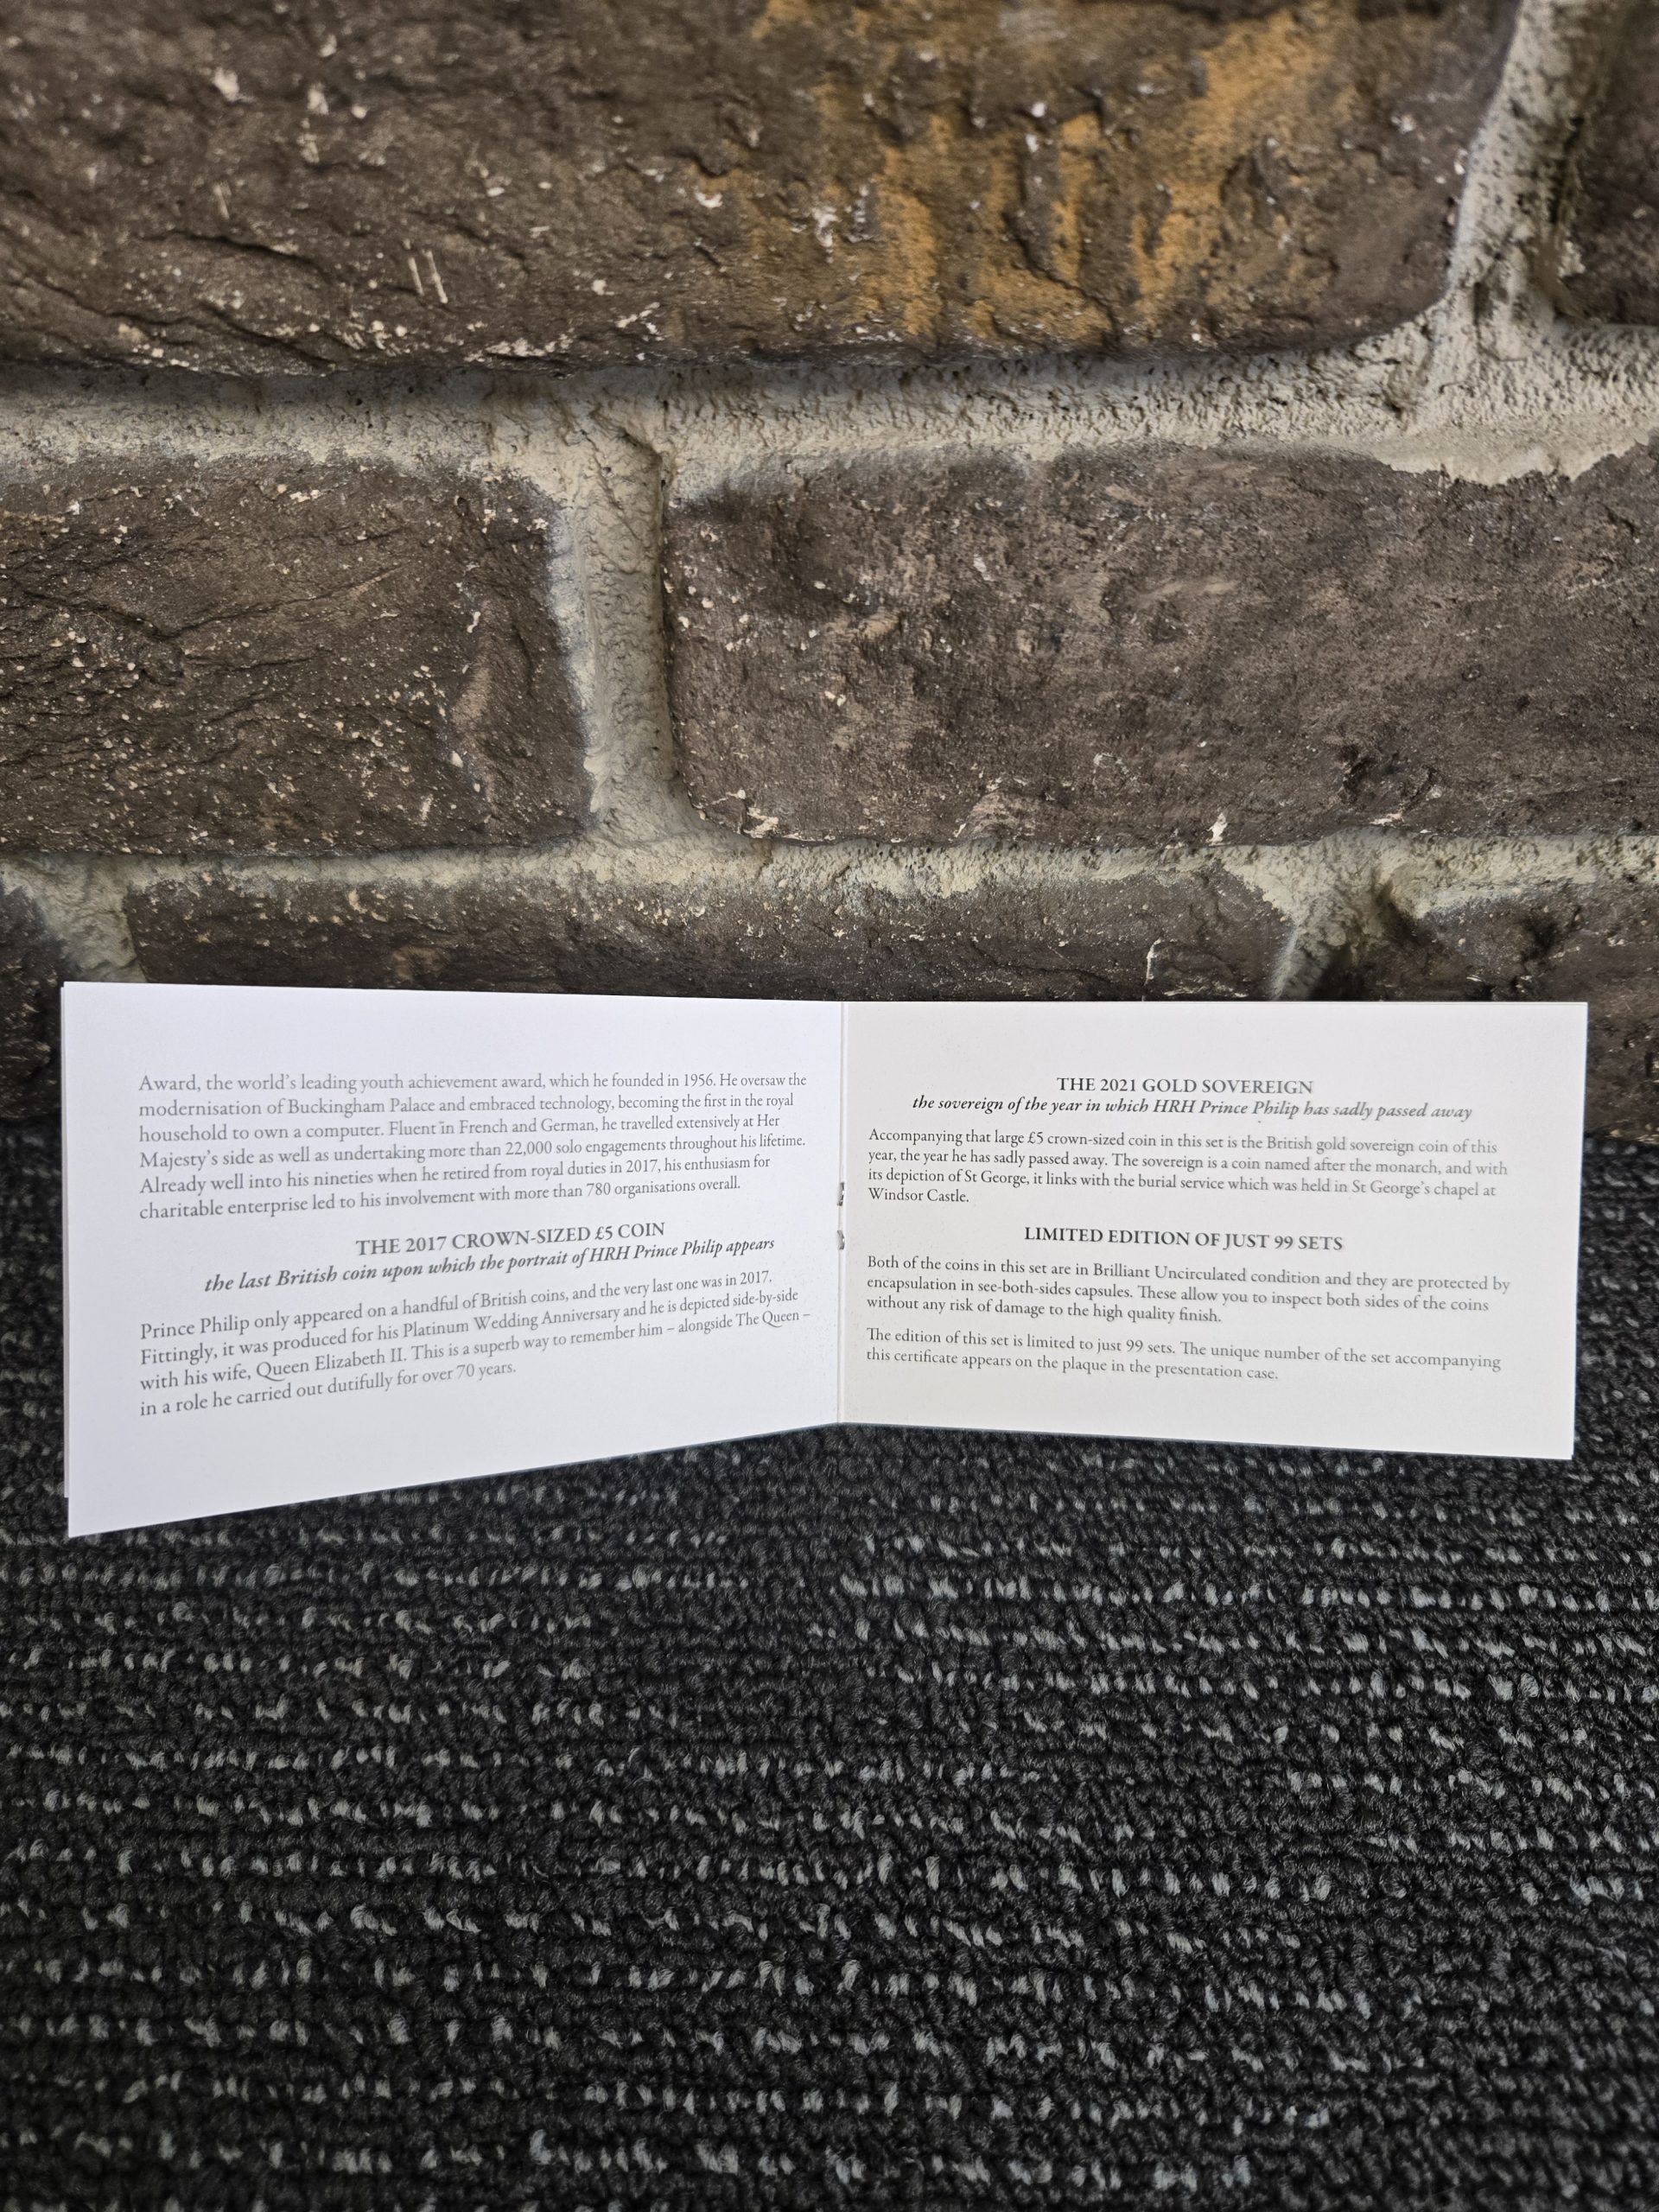 Award, the world's leading youth achievement award, which he founded in 1956. He oversaw the
modernisation of Buckingham Palace and embraced technology, becoming the first in the royal
household to own a computer. Fluent in French and German, he travelled extensively at Her
Majesty's side as well as undertaking more than 22,000 solo engagements throughout his lifetime.
Already well into his nineties when he retired from royal duties in 2017, his enthusiasm for
charitable enterprise led to his involvement with more than 780 organisations overall.
THE 2017 CROWN-SIZED £5 COIN
the last British coin upon which the portrait of HRH Prince Philip appears
Prince Philip only appeared on a handful of British coins, and the very last one was in 2017.
Fittingly, it was produced for his Platinum Wedding Anniversary and he is depicted side-by-side
with his wife, Queen Elizabeth II. This is a superb way to remember him – alongside The Queen –
in a role he carried out dutifully for over 70 years.
THE 2021 GOLD SOVEREIGN
the sovereign of the year in which HRH Prince Philip has sadly passed away
Accompanying that large £5 crown-sized coin in this set is the British gold sovereign coin of this
year, the year he has sadly passed away. The sovereign is a coin named after the monarch, and with
its depiction of St George, it links with the burial service which was held in St George's chapel at
Windsor Castle.
LIMITED EDITION OF JUST 99 SETS
Both of the coins in this set are in Brilliant Uncirculated condition and they are protected by
encapsulation in see-both-sides capsules. These allow you to inspect both sides of the coins
without any risk of damage to the high quality finish.
The edition of this set is limited to just 99 sets. The unique number of the set accompanying
this certificate appears on the plaque in the presentation case.